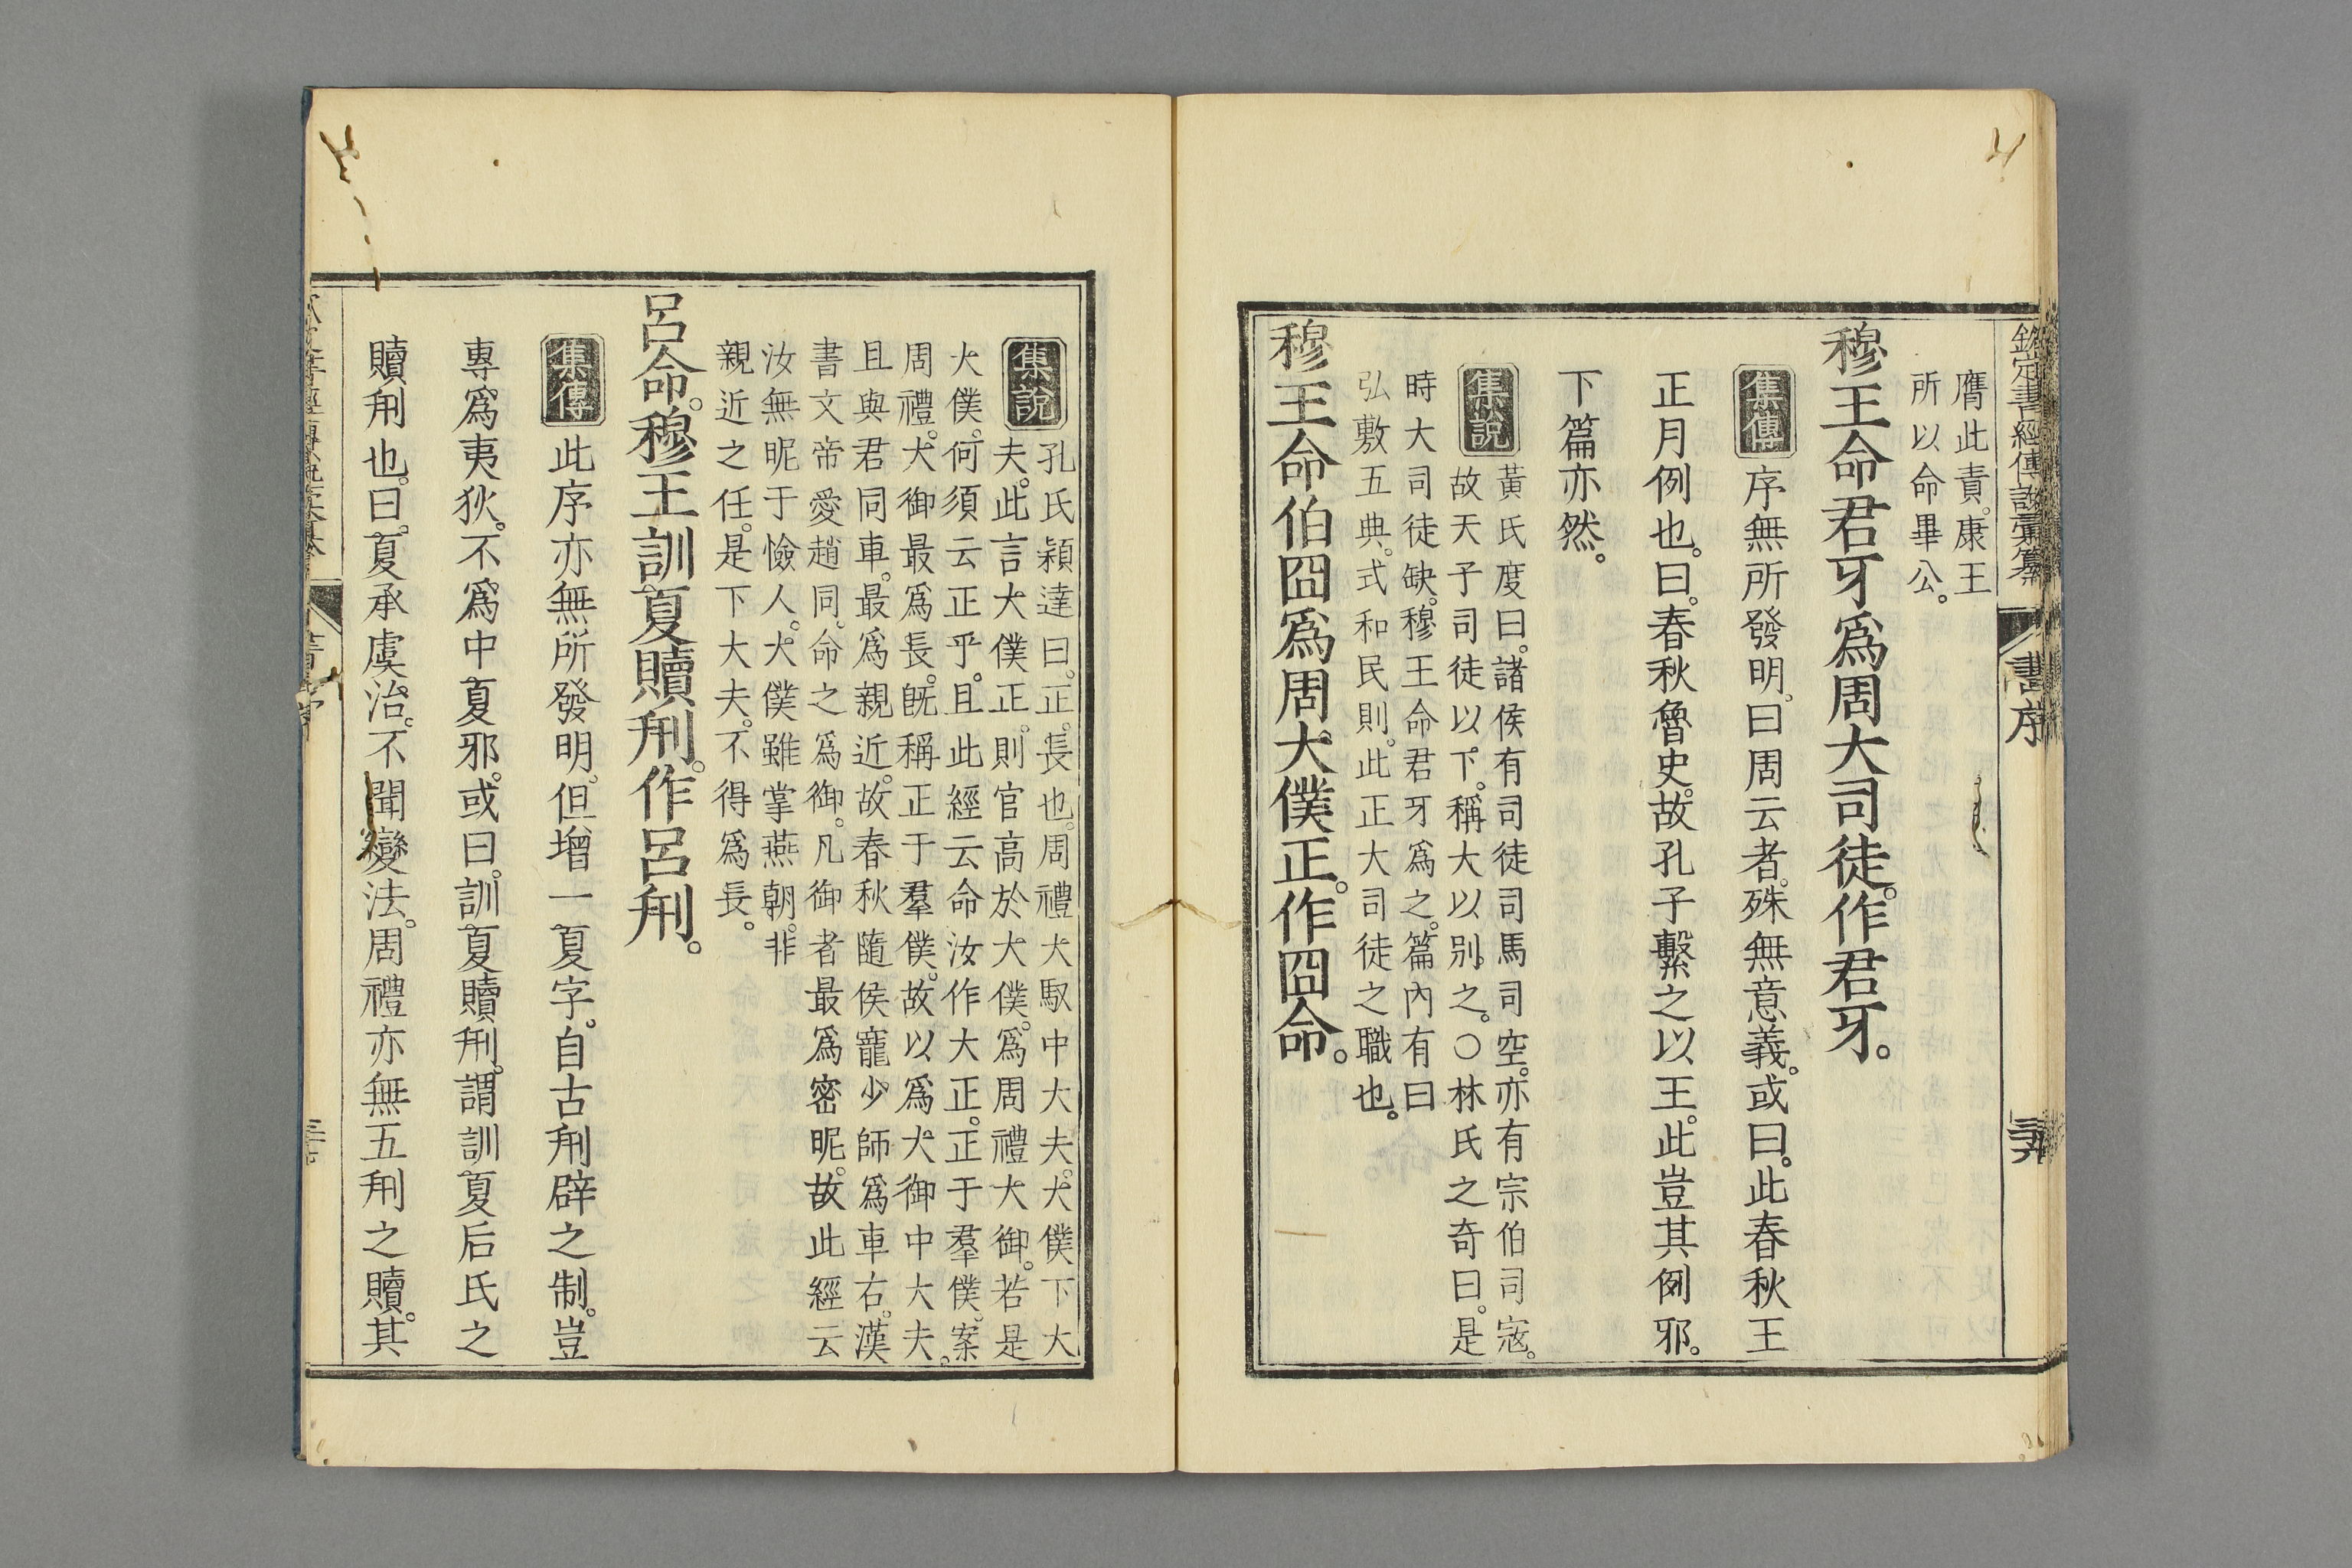 鑑定書經傳說彙纂
書序
膺此責。康王
所以命畢公。
穆王命君牙爲周大司徒。作君牙。
集傳
序無所發明。曰周云者。殊無意義。或曰。此春秋王
正月例也。曰。春秋魯史。故孔子繫之以王。此豈其例邪。
下篇亦然。
集說
黃氏度曰。諸侯有司徒司馬司空。亦有宗伯司寇。
故天子司徒以下。稱大以別之。○林氏之奇曰。是
時大司徒缺。穆王命君牙爲之。篇內有曰
弘敷五典。式和民則。此正大司徒之職也。
穆王命伯冏爲周太僕正。作冏命。
集說
孔氏穎達曰。正。長也。周禮太馭中大夫。太僕下大
夫。此言太僕正。則官高於太僕。爲周禮太御。若是
太僕。何須云正乎。且此經云命汝作大正。正于羣僕。案
周禮。太御最爲長。旣稱正于羣僕。故以爲太御中大夫。
且與君同車。最爲親近。故春秋隨侯寵少師爲車右。漢
書文帝愛趙同。命之爲御。凡御者最爲密昵。故此經云
汝無昵于憸人。太僕雖掌燕朝。非
親近之任。是下大夫。不得爲長。
呂命。穆王訓夏贖刑。作呂刑。
集傳
此序亦無所發明。但增一夏字。自古刑辟之制。豈
專爲夷狄。不爲中夏邪。或曰。訓夏贖刑。謂訓夏后氏之
贖刑也。曰。夏承虞治。不聞變法。周禮亦無五刑之贖。其